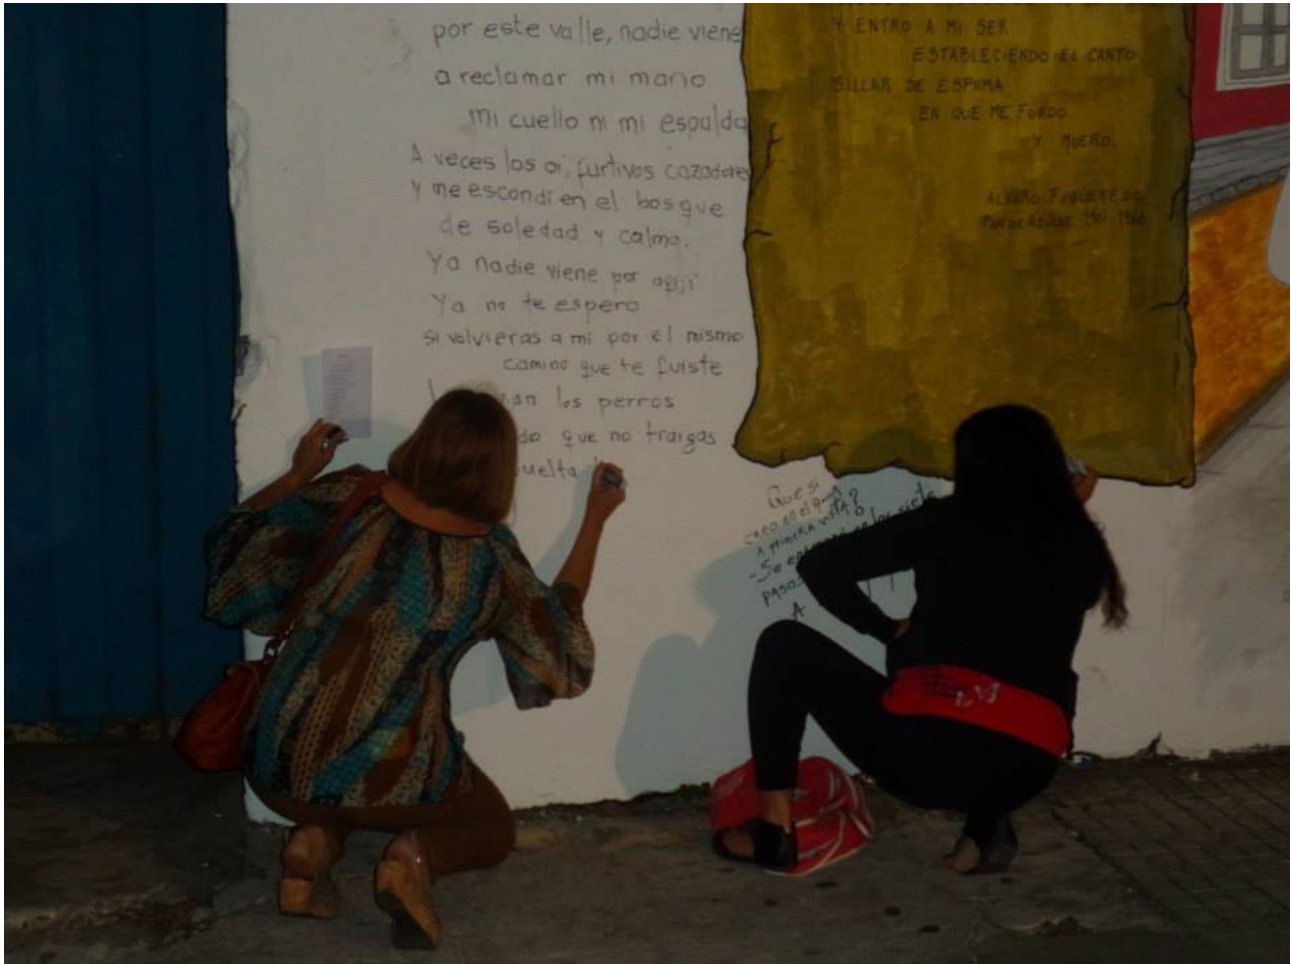 por este valle, nadie viene
a reclamar mi mano
mi cuello ni mi espalda
A veces los oi, furtivos cazadores
y me escondí en el bosque
de soledad y calma.
Ya nadie viene por aquí
Ya no te espero
si volvieras a mi por el mismo
camino que te fuiste
los perros
que no traigas
Y ENTRO A MI SER
ESTABLECIENDO EL CANTO
SILLAR DE ESPUMA
EN QUE ME FUNDO
Y MUERO.
ALVARO FIGUEREDO
Pan de Azúcar 1907-1966
Que si
creo en el amor
A primera vista?
-Se
los siete
PASOS
A